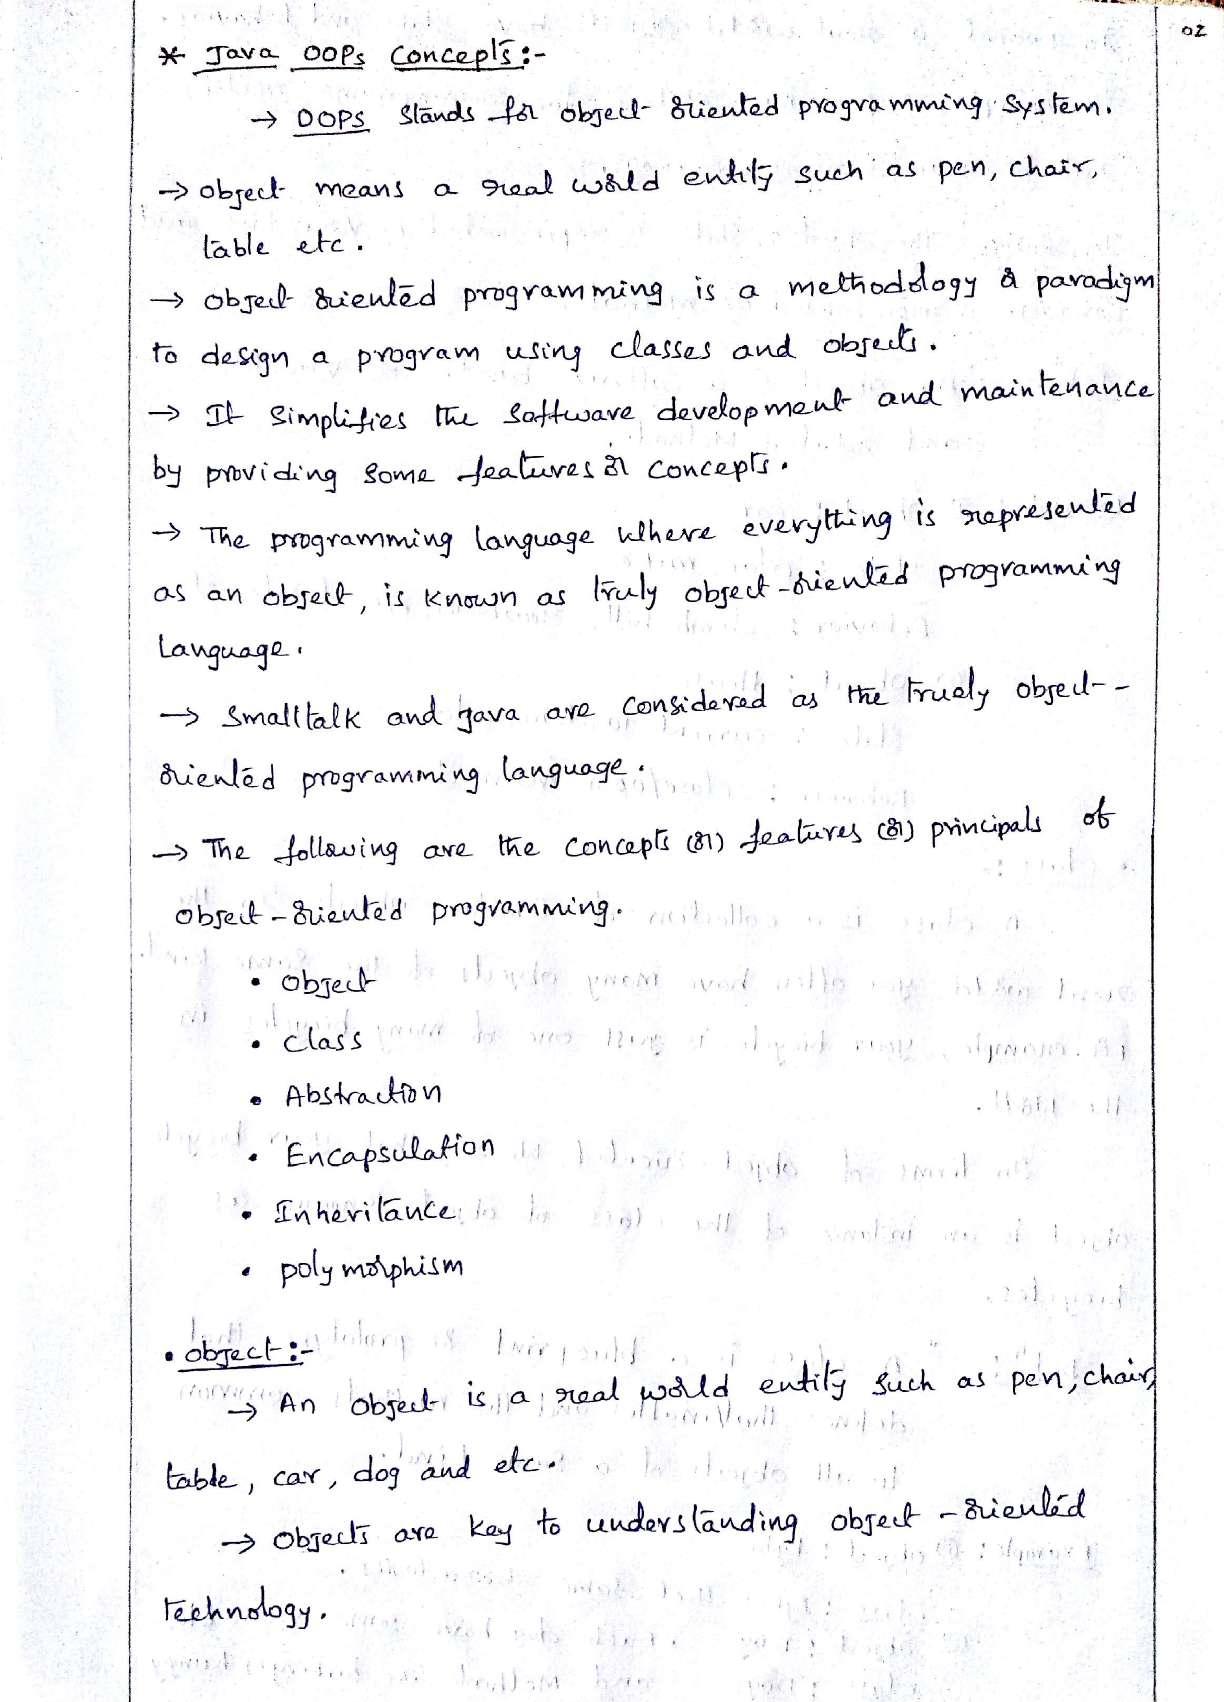 02
* Java OOPs Concepts :-
→ OOPS Stands for object oriented programming System.
→ object means a real world entity such as pen, chair,
table etc.
→ object oriented programming is a methodology or paradigm
to design a program using classes and objects.
→ It Simplifies the Software development and maintenance
by providing Some features or concepts.
→ The programming language where everything is represented
as an object, is known as truly object-oriented programming
Language.
→ Smalltalk and Java are considered as the truely object-
oriented programming language.
→ The following are the concepts (or) features (or) principals of
object-oriented programming.
• object
• class
• Abstraction
• Encapsulation
• Inheritance
• polymorphism
• object :-
→ An object is a real world entity such as pen, chair,
table, car, dog and etc.
→ Objects are key to understanding object-oriented
technology.